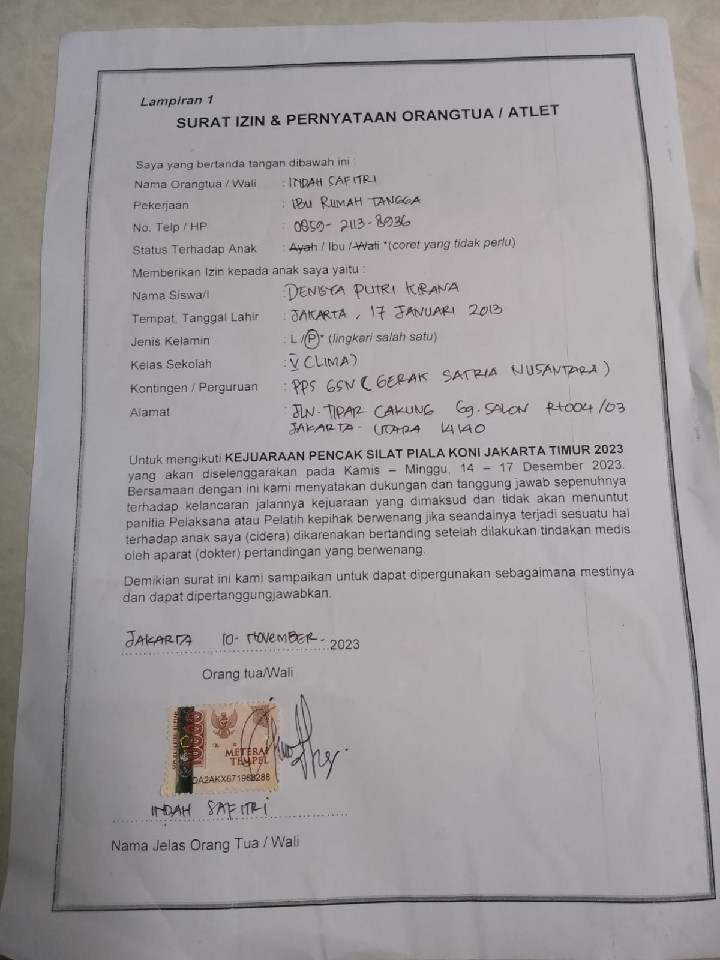 Lampiran 1
SURAT IZIN & PERNYATAAN ORANGTUA / ATLET
Saya yang bertanda tangan dibawah ini :
Nama Orangtua / Wali : INDAH SAFITRI
Pekerjaan : IBU RUMAH TANGGA
No. Telp / HP : 0859-2113-8936
Status Terhadap Anak : Ayah / Ibu / Wali *(coret yang tidak perlu)
Memberikan Izin kepada anak saya yaitu :
Nama Siswa/I : DENGTA PUTRI KIRANA
Tempat, Tanggal Lahir : JAKARTA, 17 JANUARI 2013
Jenis Kelamin : L /P* (lingkari salah satu)
Kelas Sekolah : V (LIMA)
Kontingen / Perguruan : PPS GSN (GERAK SATRIA NUSANTARA)
Alamat : JLN. TIPAR CAKUNG Gg. SALON Rt004/03
JAKARTA - UTARA 14140
Untuk mengikuti KEJUARAAN PENCAK SILAT PIALA KONI JAKARTA TIMUR 2023
yang akan diselenggarakan pada Kamis – Minggu, 14 – 17 Desember 2023.
Bersamaan dengan ini kami menyatakan dukungan dan tanggung jawab sepenuhnya
terhadap kelancaran jalannya kejuaraan yang dimaksud dan tidak akan menuntut
panitia Pelaksana atau Pelatih kepihak berwenang jika seandainya terjadi sesuatu hal
terhadap anak saya (cidera) dikarenakan bertanding setelah dilakukan tindakan medis
oleh aparat (dokter) pertandingan yang berwenang.
Demikian surat ini kami sampaikan untuk dapat dipergunakan sebagaimana mestinya
dan dapat dipertanggungjawabkan.
JAKARTA 10-NOVEMBER- 2023
Orang tua/Wali
10000
METERAI
TEMPEL
DA2AKX671968286
INDAH SAFITRI
Nama Jelas Orang Tua / Wali